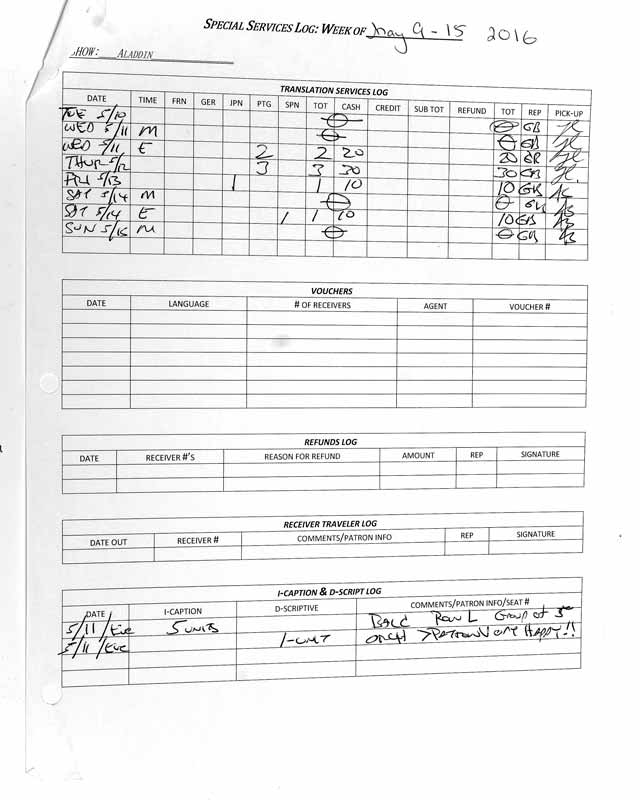 SPECIAL SERVICES LOG: WEEK OF May 9-15 2016
SHOW: ALADDIN
TRANSLATION SERVICES LOG
DATE TIME FRN GER JPN PTG SPN TOT CASH CREDIT SUB TOT REFUND TOT REP PICK-UP
TUE 5/10
WED 5/11 M GB
WED 5/11 E 2 2 20 GB
THUR 5/12 3 3 30 20 GB
FRI 5/13 1 1 10 30 GB
SAT 5/14 M 10 GB
SAT 5/14 E 1 1 10 GB
SUN 5/15 M 10 GB
GB
VOUCHERS
DATE LANGUAGE # OF RECEIVERS AGENT VOUCHER #
REFUNDS LOG
DATE RECEIVER #'S REASON FOR REFUND AMOUNT REP SIGNATURE
RECEIVER TRAVELER LOG
DATE OUT RECEIVER # COMMENTS/PATRON INFO REP SIGNATURE
I-CAPTION & D-SCRIPT LOG
DATE I-CAPTION D-SCRIPTIVE COMMENTS/PATRON INFO/SEAT #
5/11/Eve 5 UNITS Row L Group of 5
5/11/Eve 1-UNIT ORCH > PATRON VERY HAPPY!!